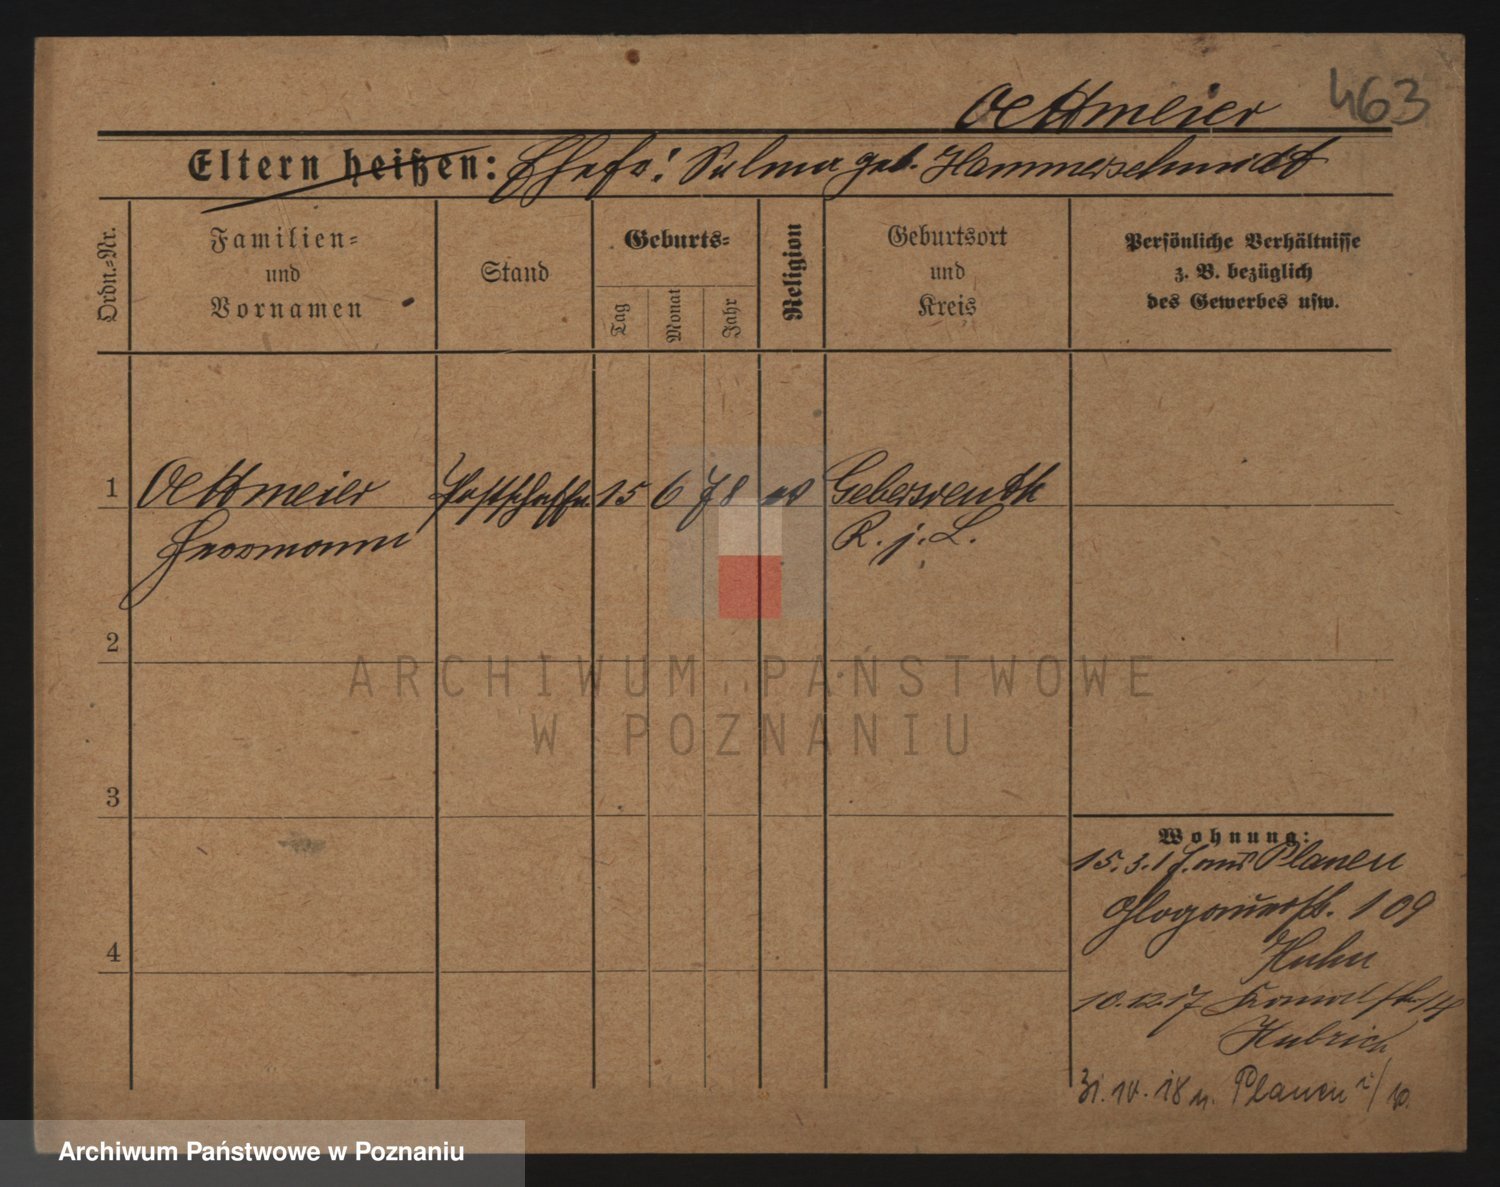 463
Oettmeier
Eltern heißen: Ehefr: Selma geb. Hammerschmidt
Ordn.=Nr.
Familien=
und
Vornamen
Stand
Geburts=
Tag
Monat
Jahr
Religion
Geburtsort
und
Kreis
Persönliche Verhältnisse
z. B. bezüglich
des Gewerbes usw.
1 Oettmeier Postschaffn. 15 6 78 ev Gebersreuth
Herrmann R. j. L.
2
3
4
Wohnung:
15.3.17. aus Plauen
Glogauerstr. 109
Huhn
10.12.17 14
Hubrich
31.10.18 n. Plauen i/
ARCHIWUM PAŃSTWOWE
W POZNANIU
Archiwum Państwowe w Poznaniu